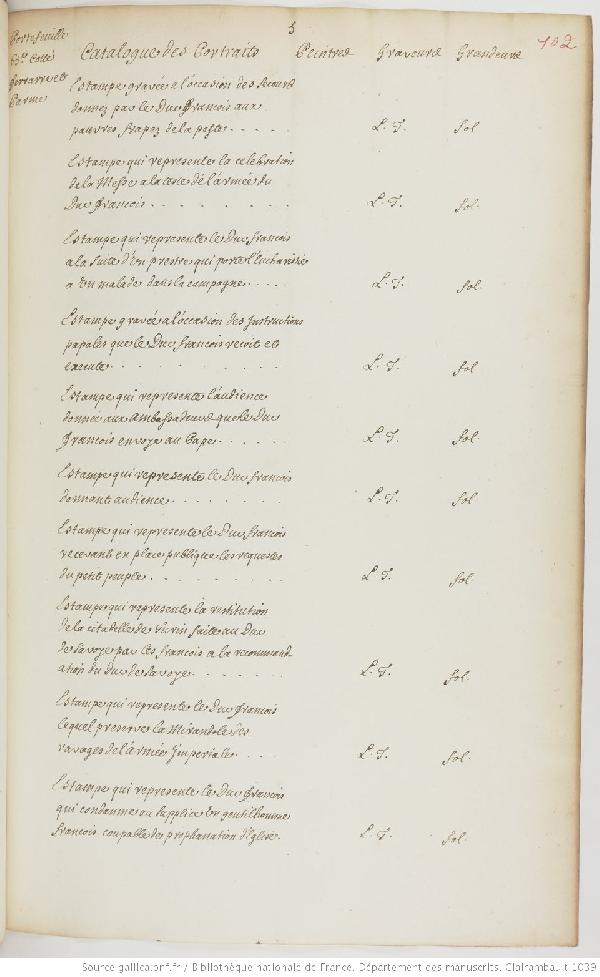 5
102
Portefeuille
63.e Cotté
Ferrarre et
Parme
Catalogue des Portraits Peintres Graveurs Grandeurs
Estampe gravée a l'occasion des secours
donnez par le Duc François aux
pauvres frapez de la peste. . . . . L. T. fol
Estampe qui represente la celebration
de la Messe a la teste de l'armée du
Duc François . . . . . . . . L. T. fol.
Estampe qui represente le Duc françois
a la suite d'un prestre qui porte l'Eucharistie
a un malade dans la campagne. . . . . L. T. fol.
Estampe gravée a l'occasion des Instructions
papales que le Duc françois recoit et
execute. . . . . . . . . . . L. T. fol.
Estampe qui represente l'audience
donnée aux Ambassadeurs que le Duc
François envoye au Pape. . . . . L. T. fol.
Estampe qui represente le Duc françois
donnant audience. . . . . . . . L. T. fol
Estampe qui represente le Duc françois
recevant en place publique les requestes
du petit peuple. . . . . . . . . L. T. fol
Estampe qui represente la restitution
de la citadelle de Turin faite au Duc
de Savoye par les françois a la recommand
ation du Duc de Savoye. . . . . . . L. T. fol.
Estampe qui represente le Duc François
lequel preserve la Mirandole des
ravages de l'armée Imperiale. . . L. T. fol.
Estampe qui represente le Duc François
qui condamne au supplice un gentilhomme
françois coupable de prophanation d'Eglise. L. T. fol.
Source gallica.bnf.fr / Bibliothèque nationale de France. Département des manuscrits. Clairambault 1039